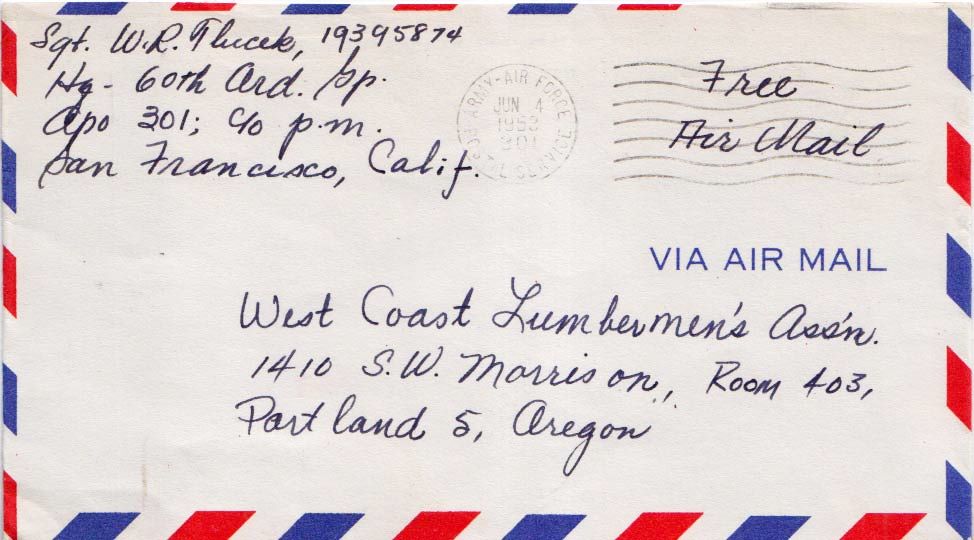 Sgt. W.R. Tlucek, 19395874
Hq- 60th Ord. Gp.
Apo 301; c/o p.m.
San Francisco, Calif.
ARMY-AIR FORCE POSTAL SERVICE
JUN 4
301
Free
Air Mail
VIA AIR MAIL
West Coast Lumbermen's Ass'n.
1410 S.W. Morrison, Room 403,
Portland 5, Oregon